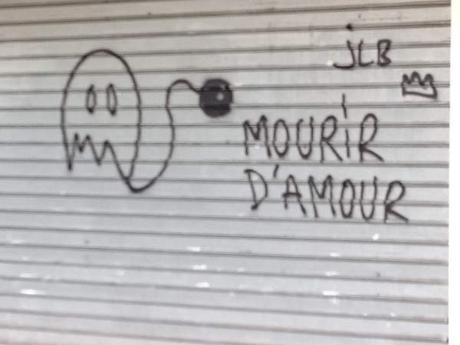 jLB
MOURiR
D'AMOUR